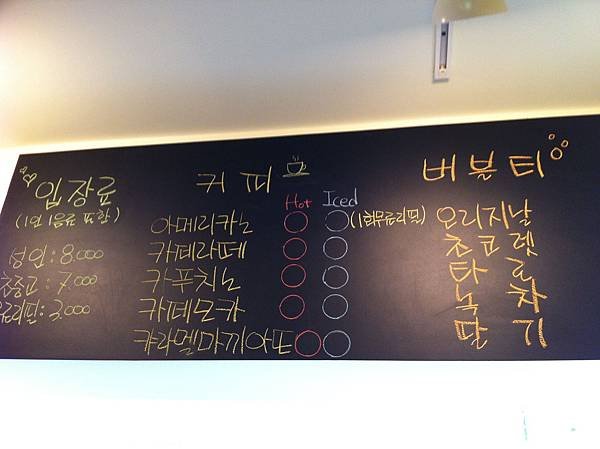 입장료
(1인 1음료 포함)
성인: 8.000
초중고: 7.000
3.000
커피
Hot Iced
아메리카노
(1회무료리필)
카페라떼
카푸치노
카페모카
캬라멜마끼아또
버블티
오리지날
초코렛
타로
녹차
딸기